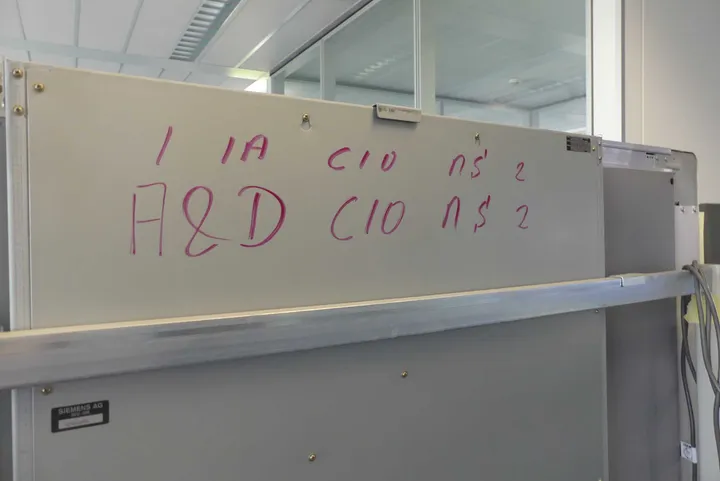 I IA CIO NS' 2
A&D CIO NS' 2
SIEMENS AG